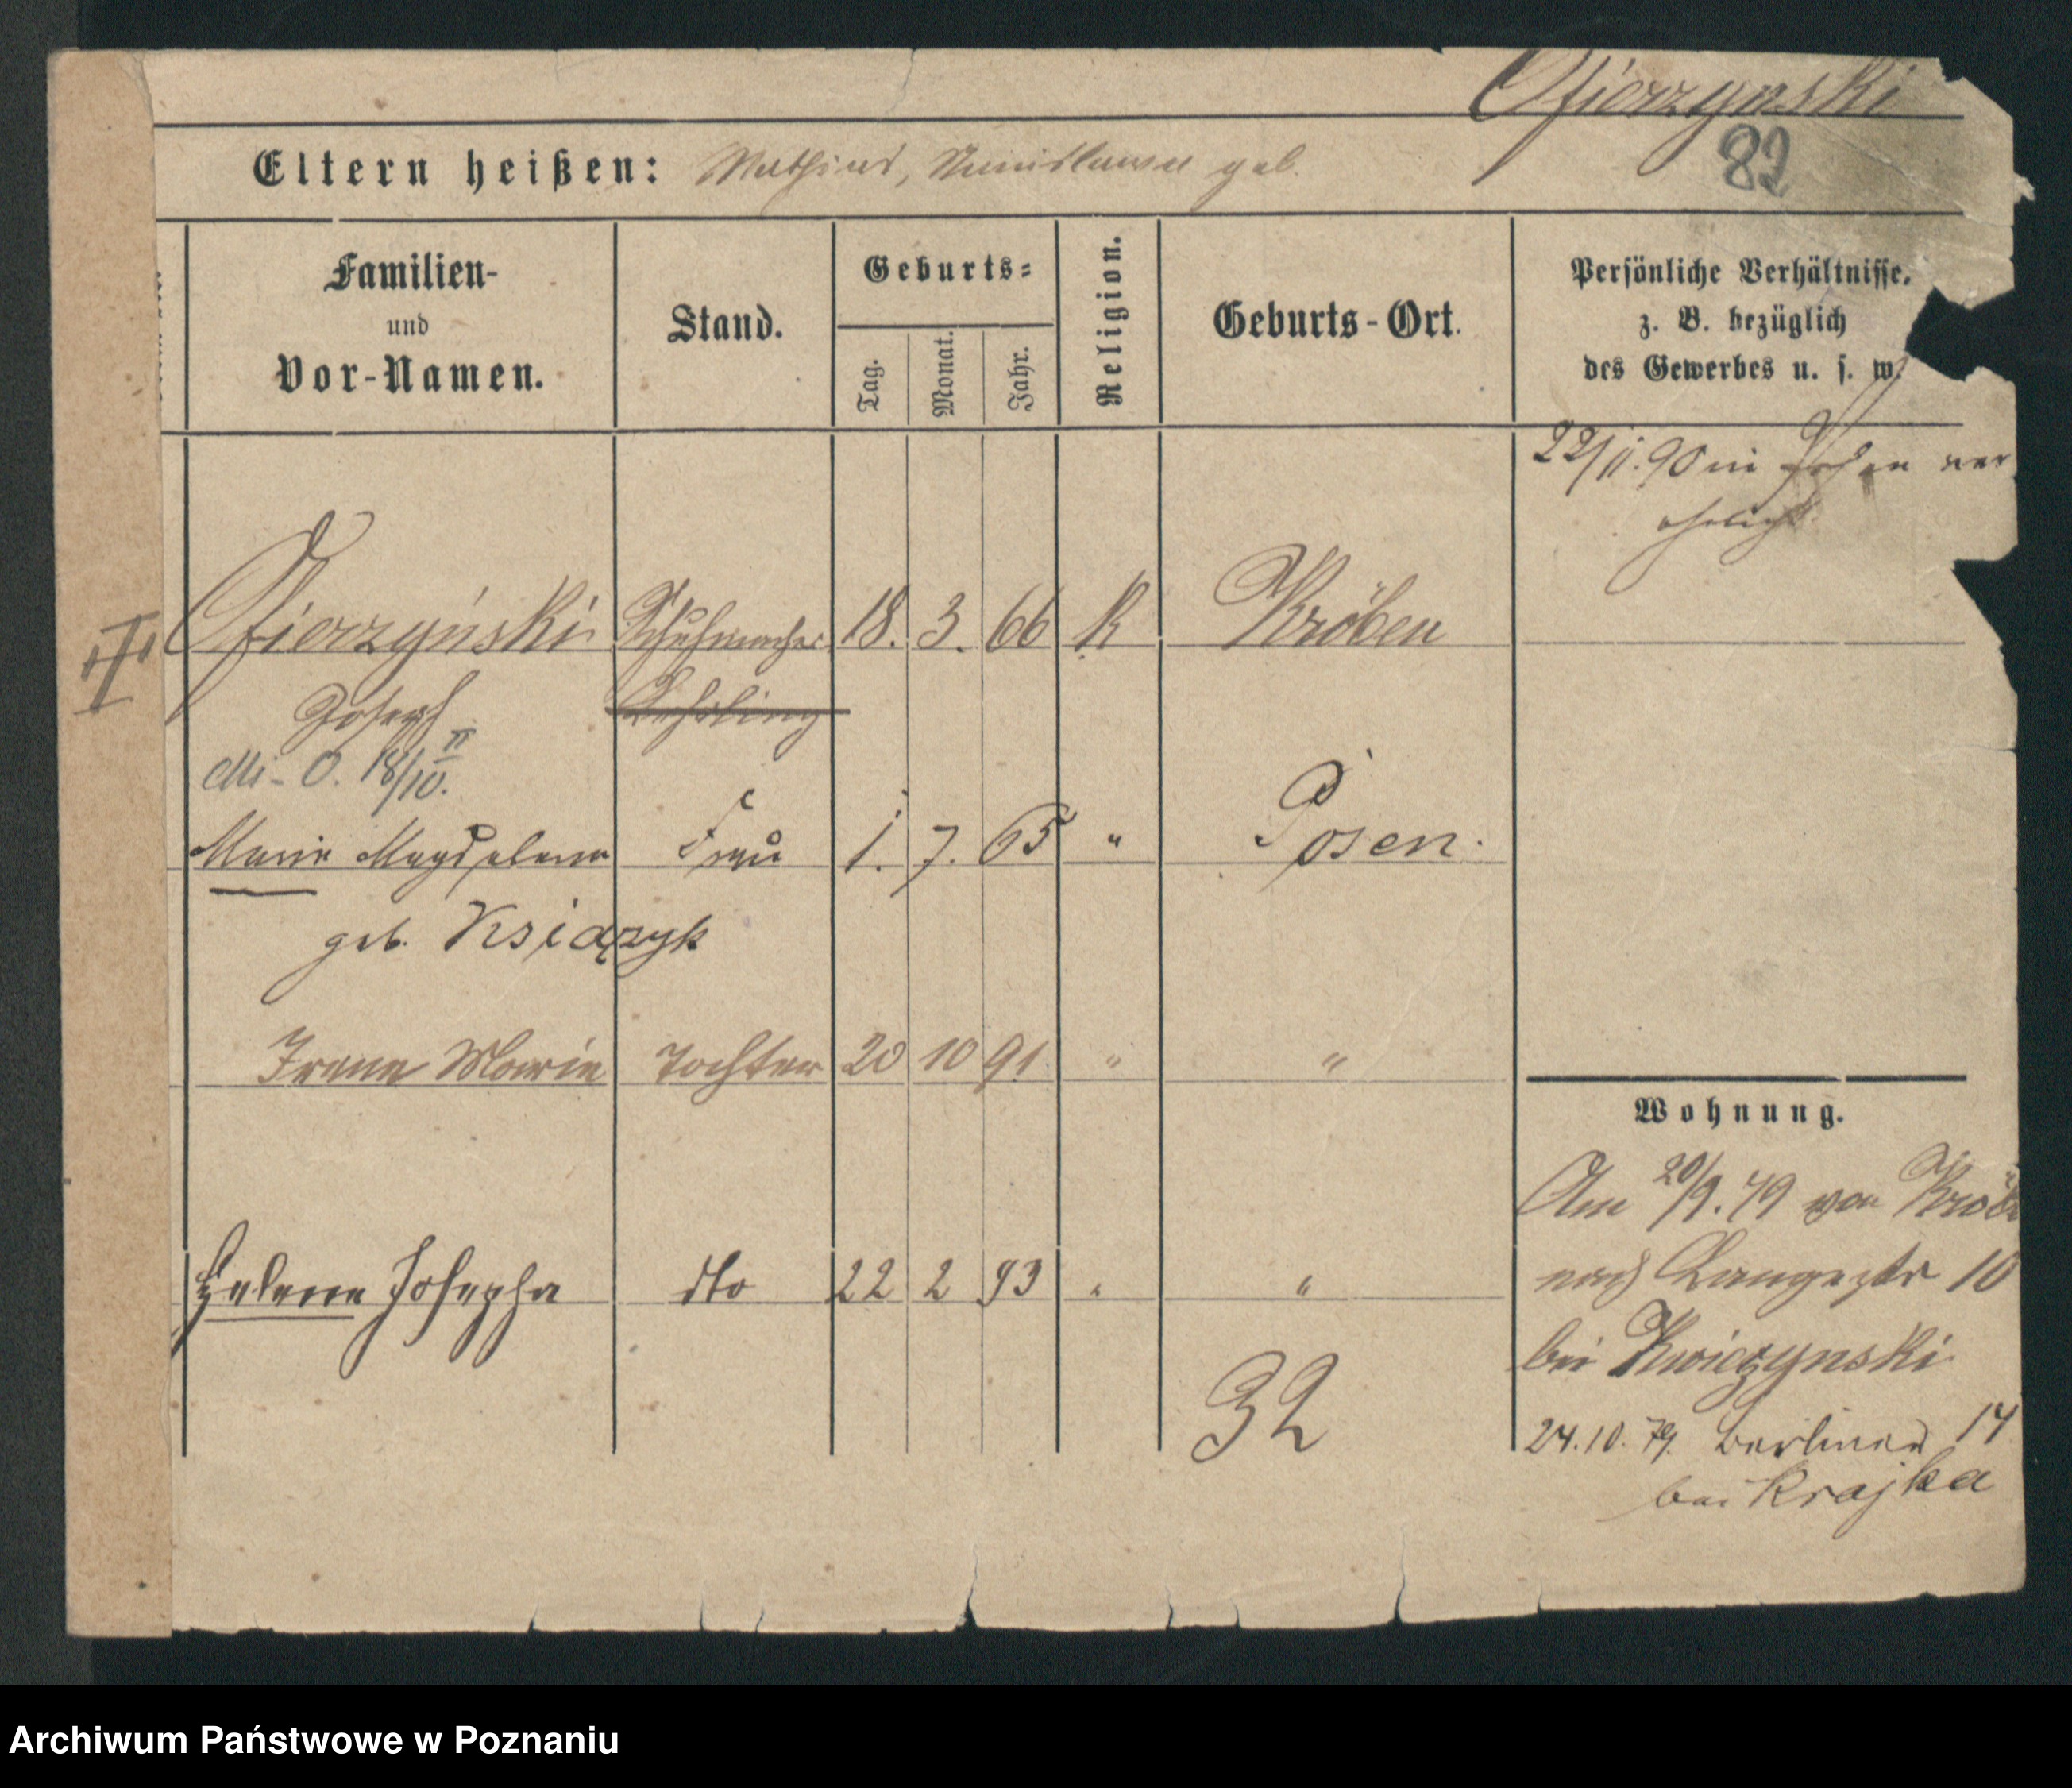 Ofierzynski
82
Eltern heißen: Mathias, Stanislawa geb.
Familien-
und
Vor-Namen.
Stand.
Geburts-
Tag.
Monat.
Jahr.
Religion.
Geburts-Ort.
Persönliche Verhältnisse,
z. B. bezüglich
des Gewerbes u. s. w.
22/11.90 in Posen ver
ehelicht
Ofierzyński Schuhmacher 18. 3. 66 K Kröben
III
Joseph Lehrling
18/10.
Marie Magdalena Frau 1. 7. 65 " Posen.
geb. Książyk
Irene Marie Tochter 20 10 91 " "
Wohnung.
Am 20/9.79 von Kröb
nach Langestr 10
Helene Josepha dto 22 2 93 " "
bei Kwiczynski
32
24.10.79. Berliner 14
bei Krajka
Archiwum Państwowe w Poznaniu